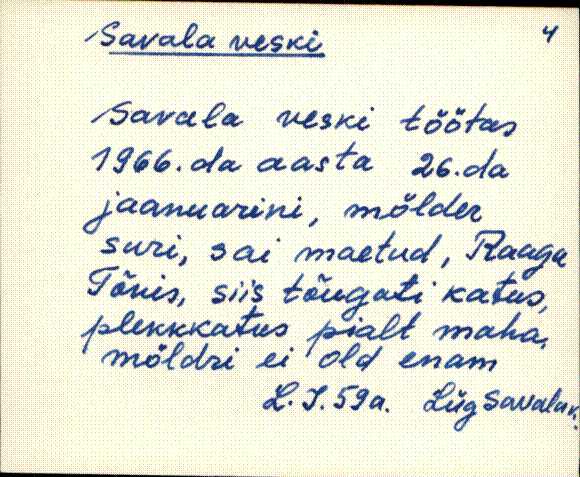 Savala veski
4
Savala veski töötas
1966.da aasta 26.da
jaanuarini, mölder
suri, sai maetud, Raagu
Tõnis, siis tõugati katus,
plekkkatus pialt maha.
möldri ei old enam
L. I. 59a. Lüg Savala k.